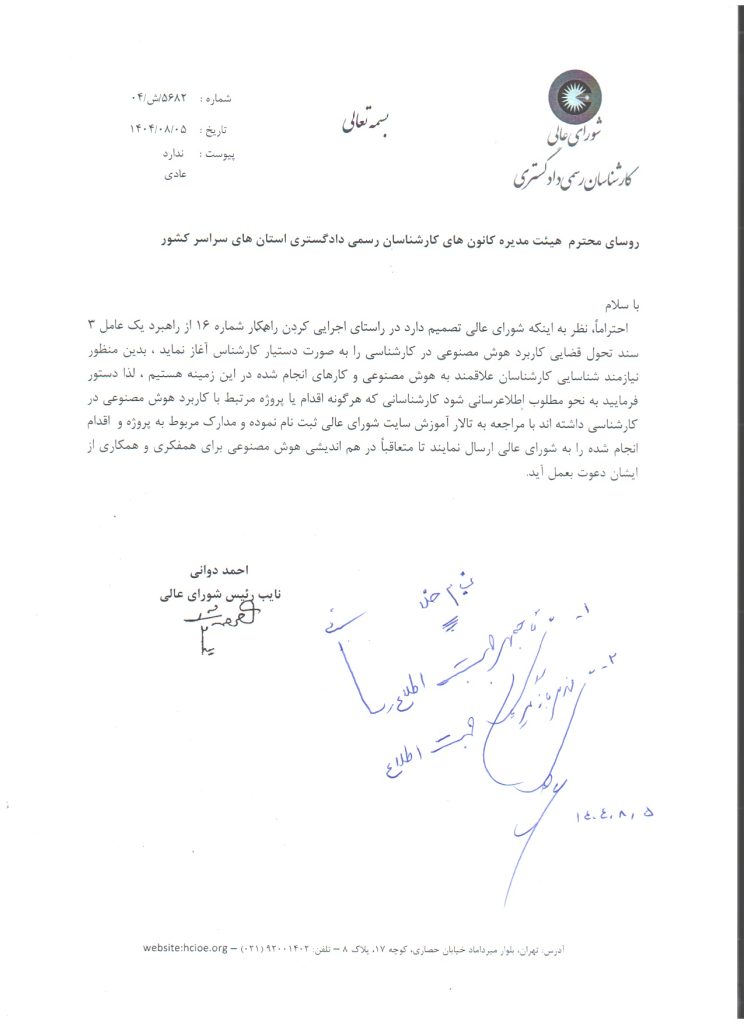 شورای عالی
کارشناسان رسمی دادگستری
بسمه تعالی
شماره : ۵۶۸۲/ش/۰۴
تاریخ : ۱۴۰۴/۰۸/۰۵
پیوست : ندارد
عادی
روسای محترم هیئت مدیره کانون های کارشناسان رسمی دادگستری استان های سراسر کشور
با سلام
احتراماً، نظر به اینکه شورای عالی تصمیم دارد در راستای اجرایی کردن راهکار شماره ۱۶ از راهبرد یک عامل ۳
سند تحول قضایی کاربرد هوش مصنوعی در کارشناسی را به صورت دستیار کارشناس آغاز نماید ، بدین منظور
نیازمند شناسایی کارشناسان علاقمند به هوش مصنوعی و کارهای انجام شده در این زمینه هستیم ، لذا دستور
فرمایید به نحو مطلوب اطلاعرسانی شود کارشناسانی که هرگونه اقدام یا پروژه مرتبط با کاربرد هوش مصنوعی در
کارشناسی داشته اند با مراجعه به تالار آموزش سایت شورای عالی ثبت نام نموده و مدارک مربوط به پروژه و اقدام
انجام شده را به شورای عالی ارسال نمایند تا متعاقباً در هم اندیشی هوش مصنوعی برای همفکری و همکاری از
ایشان دعوت بعمل آید.
احمد دوانی
نایب رئیس شورای عالی
۱-
جهت اطلاع
۲-
جهت اطلاع
۱۴۰۴،۸،۵
آدرس: تهران، بلوار میرداماد خیابان حصاری، کوچه ۱۷، پلاک ۸ – تلفن: ۹۲۰۰۱۴۰۲ (۰۲۱) – website:hcioe.org